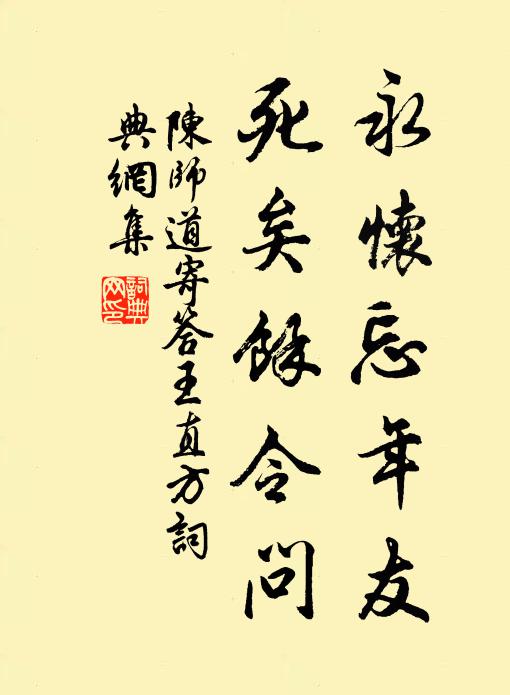 永懷忘年友
死矣餘令問
陳師道寄答王直方詞
典網集
詞典
网印